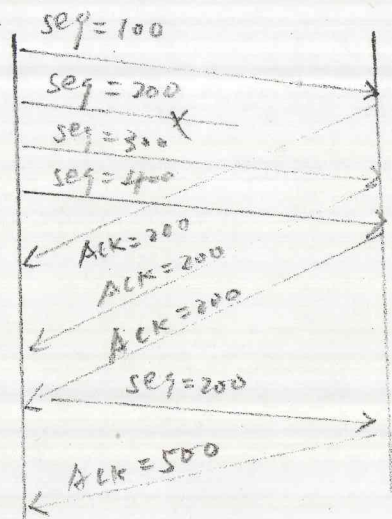 seq=100
seq=200
seq=300
seq=400
ACK=200
ACK=200
ACK=200
seq=200
ACK=500